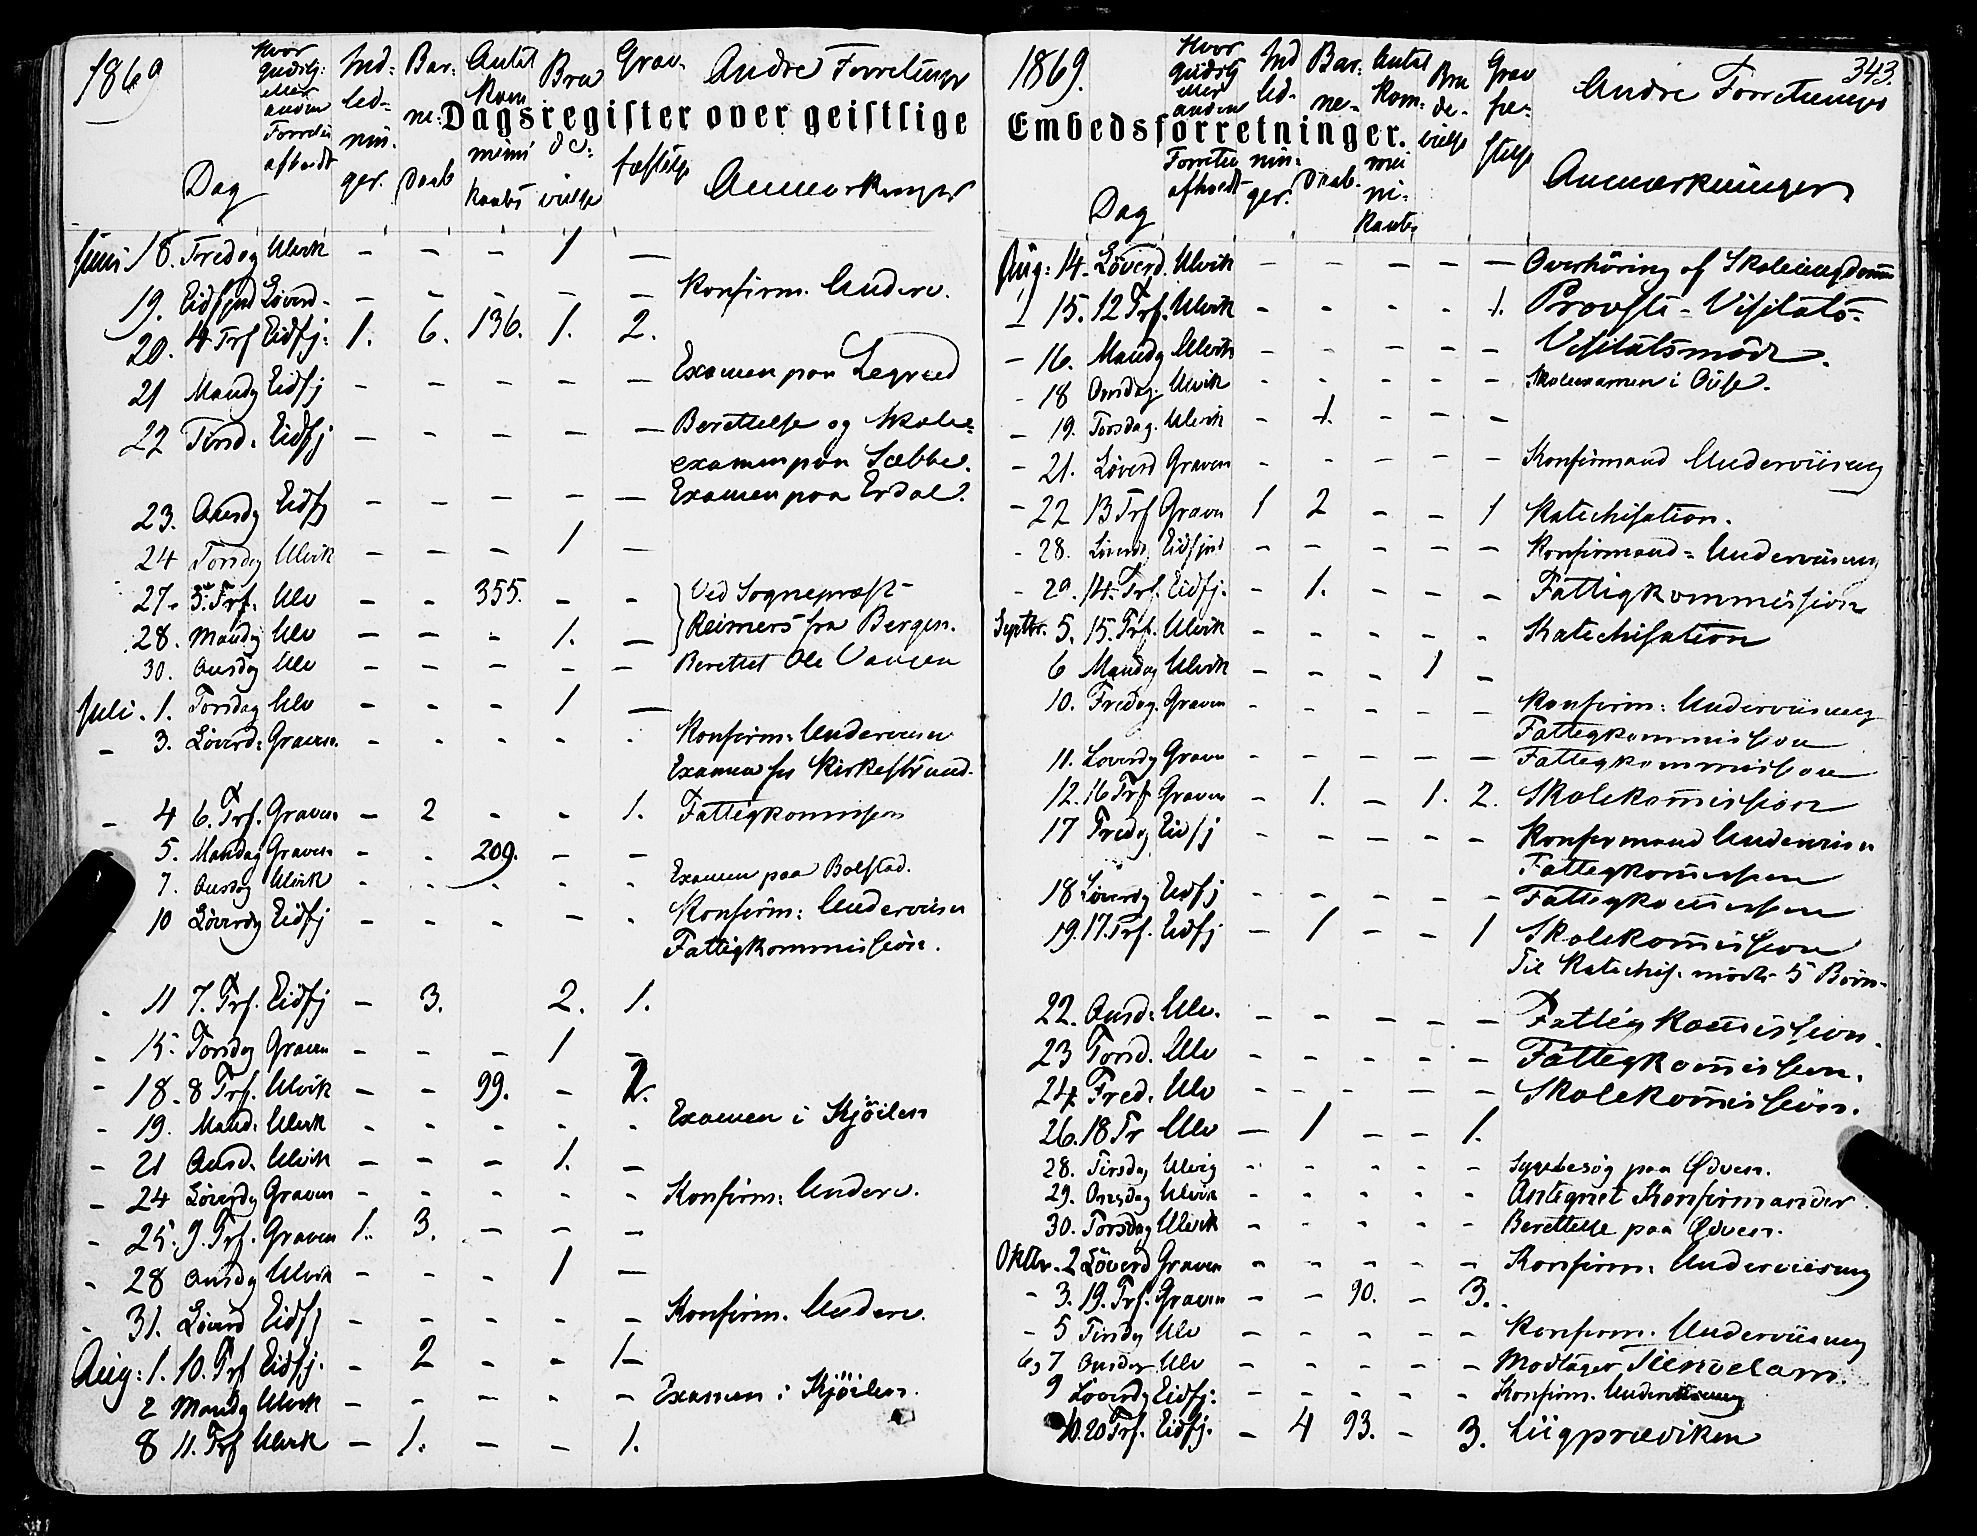 1869
Dagsregister over geistlige
Dag
Hvor Gudstj: eller anden Forretn afholdt
Ind-led-nin-ger.
Bar-ne-Daab
Antal Kom muni kants
Bru de: vielse
Grav-fæstelse
Andre Forretninger
Anmærkninger
Juni 18. Fredag Ulvik - - - 1 -
19. Eidfjord Løverd. - - - - - Konfirm. Underv.
20. 4 Trf Eidfj: 1. 6. 136. 1. 2.
21 Mandg Eidfj - - - - - Examen paa Legreid
22 Tirsd. Eidfj - - - - - Berettelse og Skole=
examen paa Sæbbe.
23. Onsdg Eidfj - - - - - Examen paa Erdal.
24 Torsdg Ulvik - - - 1 -
27. 5. Trf. Ulv - - 355. - - Ved Sognepræst
28. Mandg Ulv - - - 1. - Reimers fra Bergen.
30. Onsdg Ulv - - - - - Berettet Ole
Juli. 1. Torsdag Ulv - - - 1 -
- 3. Løverd: Graven. - - - - - Konfirm: Underviisn
Examen for Kirkestrand.
- 4 6. Trf. Graven - 2 - - 1. Fattigkommission
5. Mandag Graven - - 209. - -
7. Onsdag Ulvik - - - - - Examen paa Bolstad.
10 Løverdg Eidfj - - - - - Konfirm: Underviisn
Fattigkommission.
- 11 7. Trf. Eidfj - 3. 2. 1.
- 15. Torsdag Graven - - - 1 -
- 18. 8 Trf. Ulvik - - 99. - 2.
- 19. Mand. Ulvik - - - - - Examen i Kjöilen
- 21 Onsd. Ulvik - - - 1. -
- 24 Løverdg Graven - - - - - Konfirm: Underv.
- 25. 9. Trf. Graven 1. 3. - - -
- 28 Onsdg Ulvik - - - 1 -
- 31. Løverd Eidfj - - - - - Konfirm. Underv.
Aug: 1. 10. Trf Eidfj. - 2 - - 1-
2 Mandg Ulvik - - - - - Examen i Kjöilen.
8 11. Trf Ulvik - 1. - - 1.
1869.
343.
Embedsforretninger.
Dag
Hvor Gudstj eller anden Forretn afholdt
Ind led-nin-ger.
Bar-ne-Daab.
Antal Kom-mu ni-kants
Bru de-vielse
Grav fæ-stelse
Andre Forretninger
Anmærkninger
Aug: 14. Løverd. Ulvik - - - - - Overhöring af Skoleungdomm
- 15. 12 Trf. Ulvik - - - - 1. Provsti-Visitats-
- 16. Mandg Ulvik - - - - - Visitatsmöde.
- 18 Onsdag. Ulvik - - - - - Skoleexamen i
- 19. Torsdag. Ulvik - 1. - - -
- 21. Løverd Graven - - - - - Konfirmand Underviisning
- 22 13 Trf Graven 1 2 - - 1 Katechisation.
- 28. Løverdg Eidfjord - - - - - Konfirmand=Underviisning
- 29. 14. Trf. Eidfj. - 1. - - - Fattigkommission
Septbr. 5. 15. Trf. Ulvik - - - - - Katechisation
6 Mandag Ulvik - - - 1 -
10. Fredag. Graven - - - - - Konfirm: Underviisning
Fattigkommission
11. Løverdg Graven - - - - - Fattigkommission
12. 16 Trf Graven - 1. - 1. 2. Skolekom̅ission
17 Fredag Eidfj - - - - - Konfirmand Underviisn
Fattigkom̅ission
18 Løverdg Eidfj - - - - - Fattigkom̅ission
19. 17. Trf. Eidfj - 1 - - 1 Skolekom̅ission
Til Katechis. mødte 5 Börn.
22. Onsd: Ulv. - - - - - Fattigkom̅ission.
23 Torsd. Ulv - - - - - Fattigkom̅ission.
24. Fred. Ulv - - - - - Skolekom̅ission.
26. 18 Tr Ulv - 1 - - 1.
28. Tirsdag Ulvig - - - - - Sygebesøg paa Ødven.
29. Onsdag Ulvik - - - - - Antegnet Konfirmander
30. Torsdag Ulvik - - - - - Berettelse paa Ødven.
Oktbr. 2 Løverd Graven - - - - - Konfirm. Underviisning
- 3. 19. Trf. Graven - - 90. - 3.
- 5 Tirsdg Ulv - - - - - Konfirm. Underviisning
6, 7 Onsdag Ulv - - - - - Modtager
9 Løverdg Eidfj: - - - - - Konfirm. Underviisning
10. 20 Trf. Eidfj. - 4 93. - 3. Liigprædiken